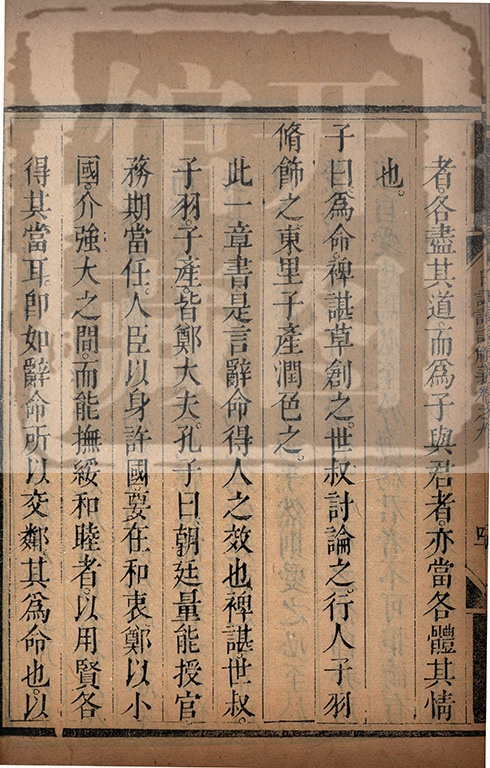 者各盡其道而爲子與君者亦當各體其情
也
子曰爲命裨諶草創之世叔討論之行人子羽
脩飾之東里子產潤色之
此一章書是言辭命得人之效也裨諶世叔
子羽子產皆鄭大夫孔子曰朝廷量能授官
務期當任人臣以身許國要在和衷鄭以小
國介強大之間而能撫綏和睦者以用賢各
得其當耳即如辭命所以交鄰其爲命也以